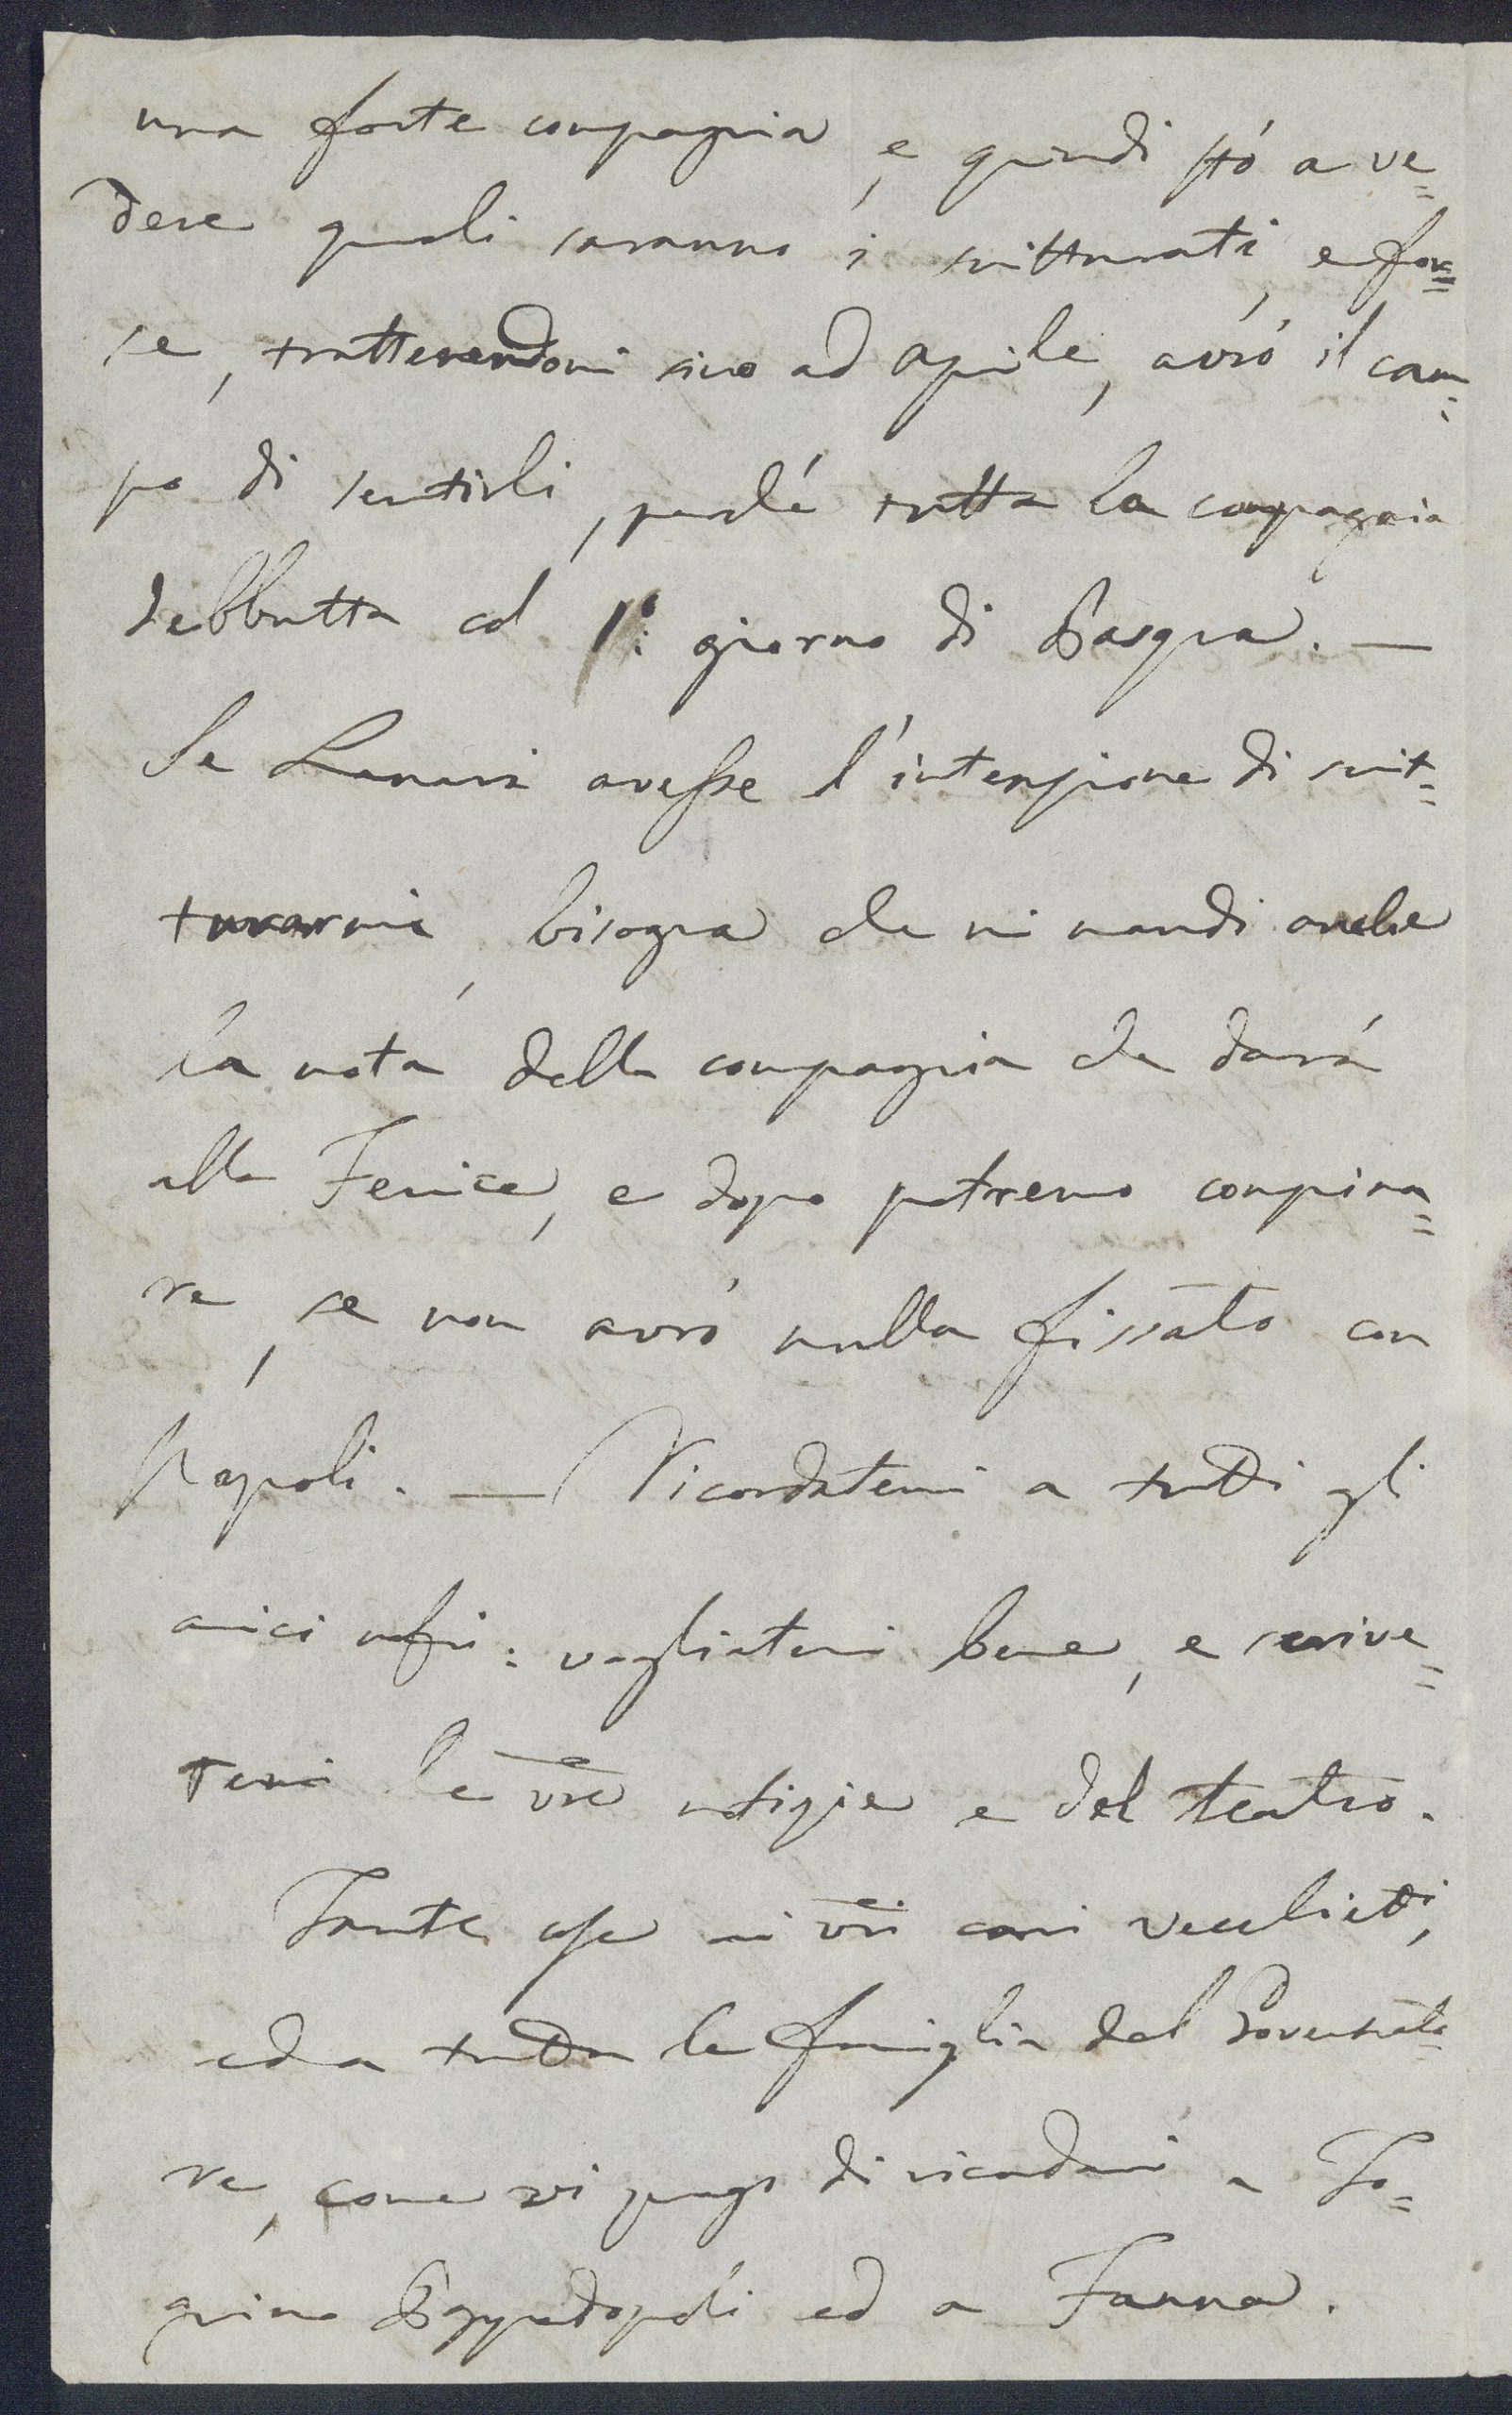 una forte compagnia, e quindi stó a ve=
dere quali saranno i scritturati, e for=
se, trattenendomi sino ad aprile, avró il cam=
po di sentirli, perché tutta la compagnia
debbutta col 1º: giorno di Pasqua. —
Se Lanari avesse l'intenzione di scrit=
turarmi, bisogna che mi mandi anche
la nota della compagnia che dará
alla Fenice, e dopo potremo compina=
re, se non avró nulla fissato con
Napoli. — Ricordatemi a tutti gli
amici nostri: vogliatemi bene, e scrive=
temi le vre notizie e del teatro.
Tante cose ai vri cari vecchietti,
ed a tutta la famiglia del Governato=
re, come vi prego di ricordarmi a To=
 ed a Fanna.